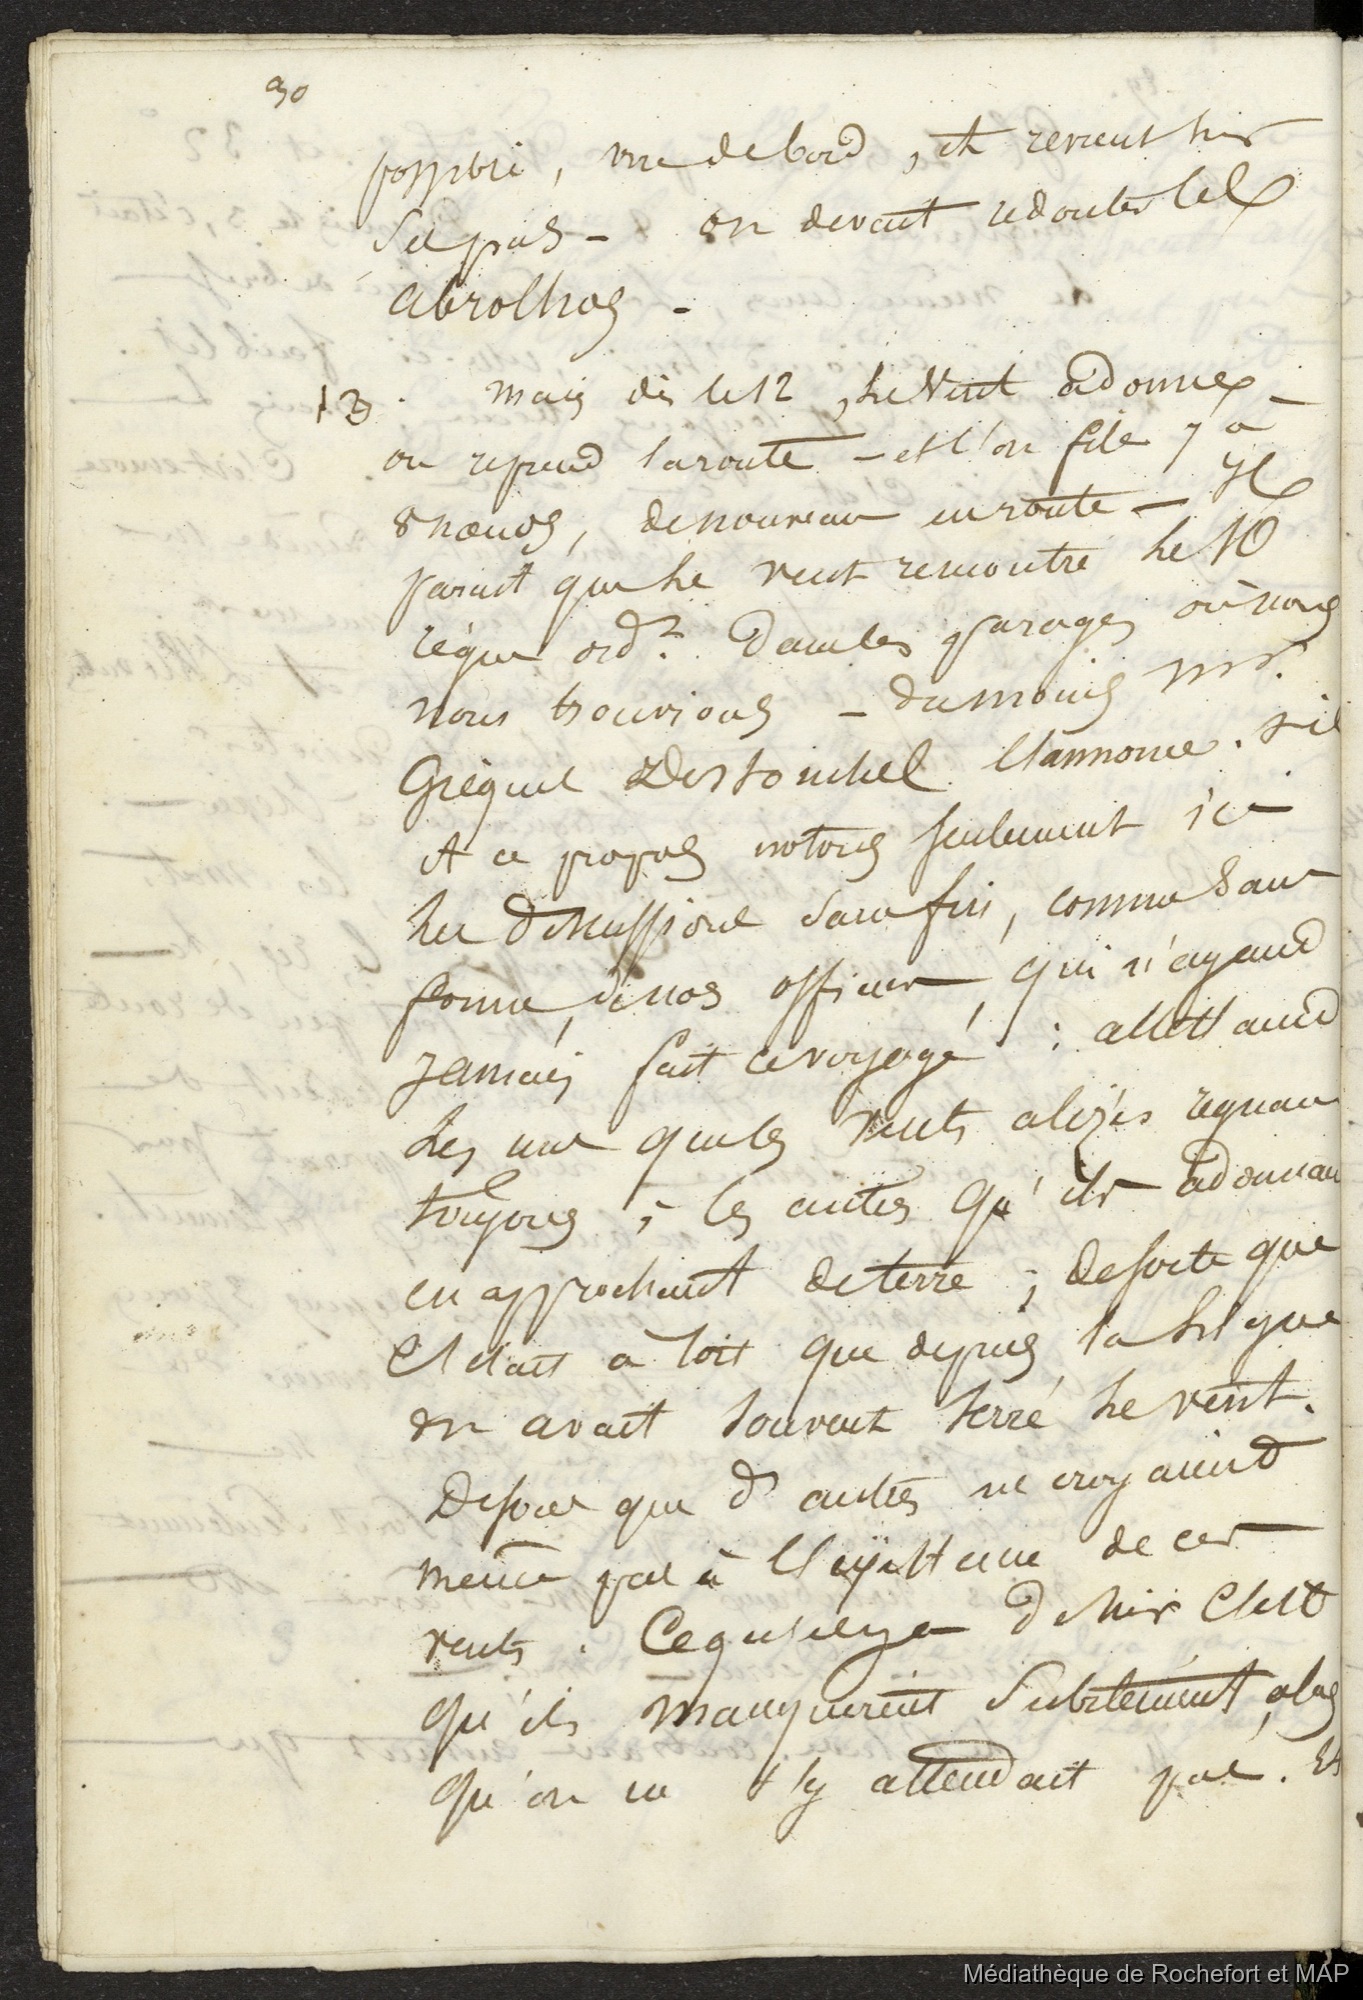 90
possible, vire de bord, et revient sur
ses pas - on devait redouter les
abrolhos -
13. mais dès le 12, le vent adonne -
on reprend la route - et l'on file 7 à
8 nœuds, de nouveau en route - Il
parait que le vent rencontré le 10
règne ord.re dans les parages où nous
nous trouvions - du moins Mr.
l'annonce.
A ce propos notons seulement ici
les discussions sans fin, comme sans
forme, de nos officiers, qui n'ayand
jamais fait ce voyage : attestaient
les uns que les vents alizés régnan
toujours ; les autres qu'ils adonnan
en approchant de terre ; de sorte que
c'était à tort que depuis la ligne
on avait souvent serré le vent.
que d'autres ne croyaient
même pas à l'existence de ces
vents. Ce qu'il y a de sûr c'est
qu'ils manquèrent subitement, alors
qu'on ne s'y attendait pas. Et
Médiathèque de Rochefort et MAP